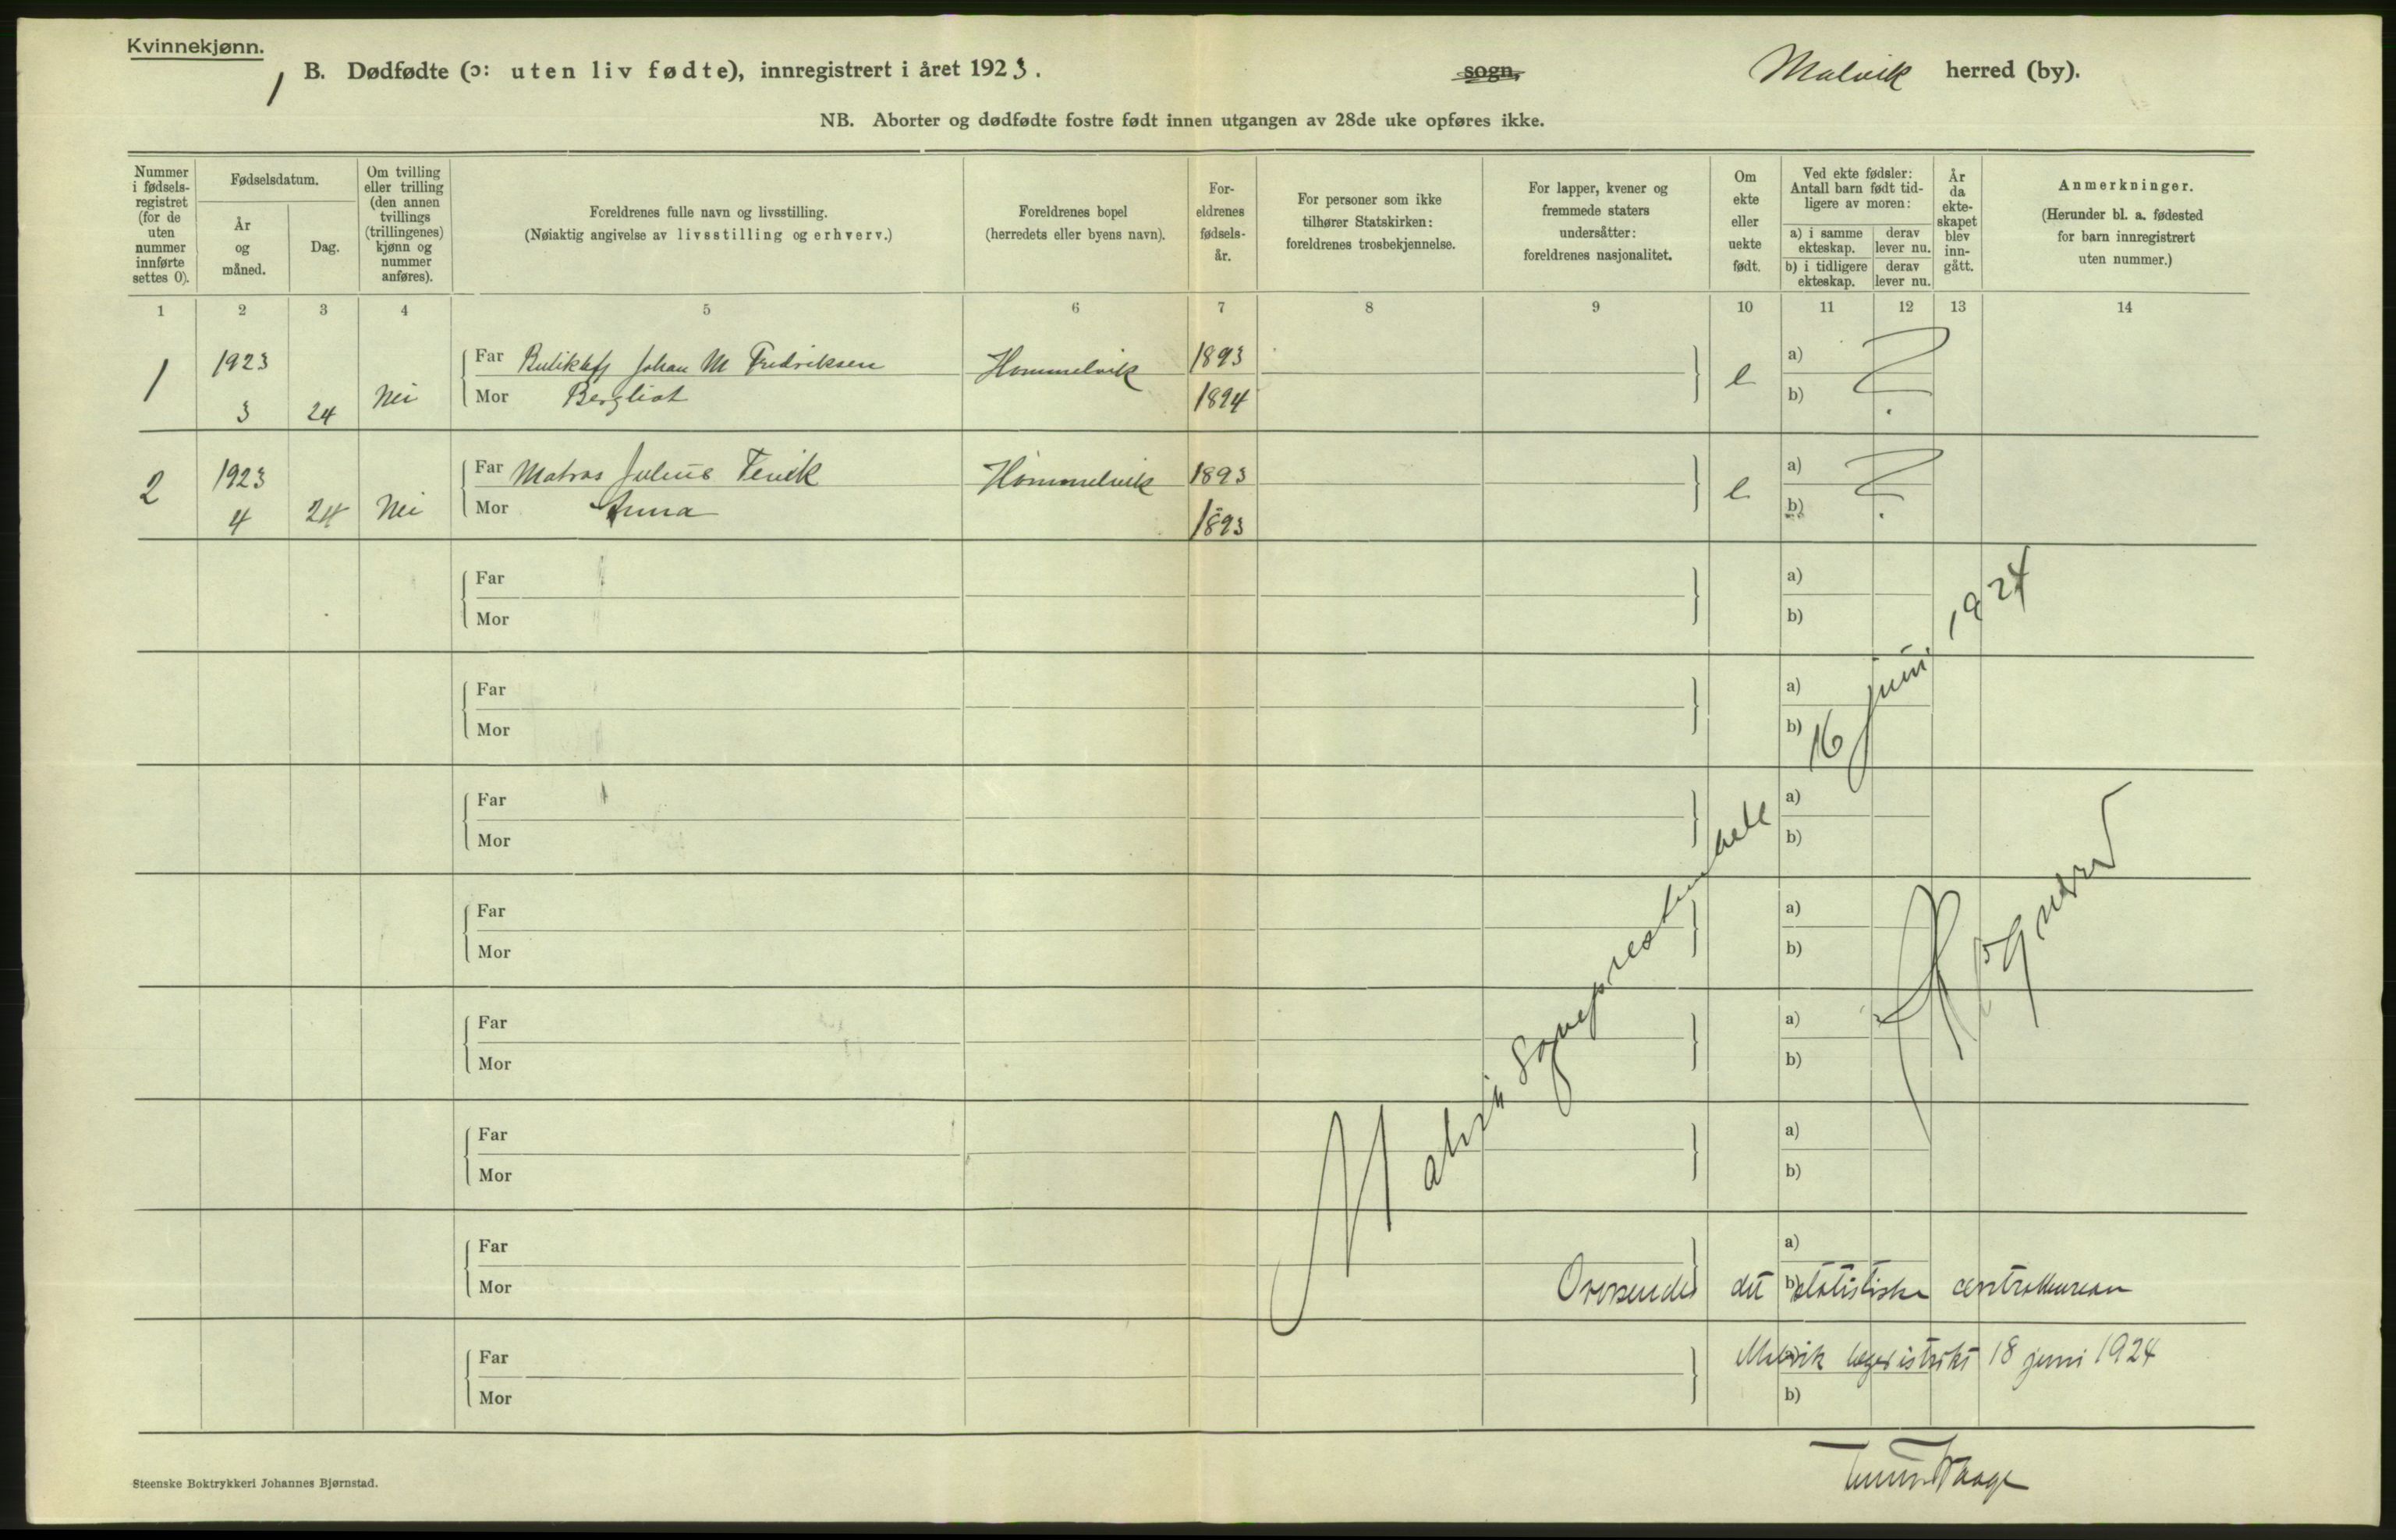 Kvinnekjønn.
1
B. Dødfødte (ɔ: uten liv fødte), innregistrert i året 1923.
sogn,
Malvik herred (by).
NB. Aborter og dødfødte fostre født innen utgangen av 28de uke opføres ikke.
Nummer i fødsels-registret (for de uten nummer innførte settes 0).
Fødselsdatum.
År og måned.
Dag.
Om tvilling eller trilling (den annen tvillings (trillingenes) kjønn og nummer anføres).
Foreldrenes fulle navn og livsstilling.
(Nøiaktig angivelse av livsstilling og erhverv.)
Foreldrenes bopel
(herredets eller byens navn).
For-eldrenes fødsels-år.
For personer som ikke tilhører Statskirken: foreldrenes trosbekjennelse.
For lapper, kvener og fremmede staters undersåtter: foreldrenes nasjonalitet.
Om ekte eller uekte født.
Ved ekte fødsler: Antall barn født tid-ligere av moren:
a) i samme ekteskap.
derav lever nu.
b) i tidligere ekteskap.
derav lever nu.
År da ekte-skapet blev inn-gått.
Anmerkninger.
(Herunder bl. a. fødested for barn innregistrert uten nummer.)
1 2 3 4 5 6 7 8 9 10 11 12 13 14
1 1923 3 24 Nei
Far Johan M Fredriksen Hommelvik 1893 e a) ?
Mor Bergliot 1894 b)
2 1923 4 24 Nei
Far Matros Julius Hommelvik 1893 e a) ?
Mor Anna 1893 b)
Far a)
Mor b)
Far a)
Mor b)
Far a)
Mor b)
Far a)
Mor b)
Far a)
Mor b)
Far a)
Mor b)
Far a)
Mor b)
Far
Mor b)
Malvik sogneprestembete 16 juni 1924
Oversendes det statistiske centralbureau
Malvik legedistrikt 18 juni 1924
Steenske Boktrykkeri Johannes Bjørnstad.